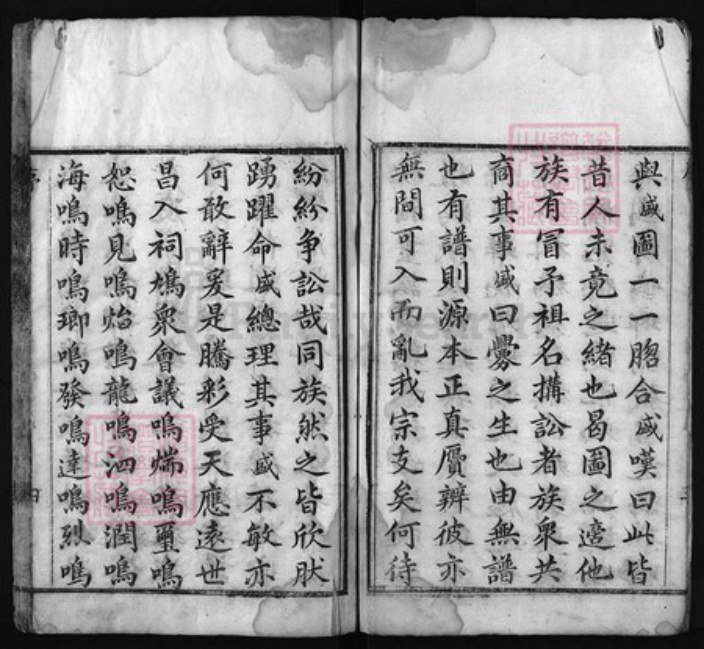 與盛圖一一脗合盛嘆曰此皆
昔人未竟之緒也曷圖之適他
族有冒予祖名搆訟者族衆共
商其事盛曰釁之生也由無譜
也有譜則源本正真贋辨彼亦
無間可入而亂我宗支矣何待
紛紛争訟哉同族然之皆欣肰
踴躍命盛總理其事盛不敏亦
何敢辭爰是騰彩受天應遠世
昌入祠鳩衆會議鳴煓鳴璽鳴
恕鳴見鳴炲鳴龍鳴泗鳴潤鳴
海鳴時鳴瑯鳴發鳴達鳴烈鳴